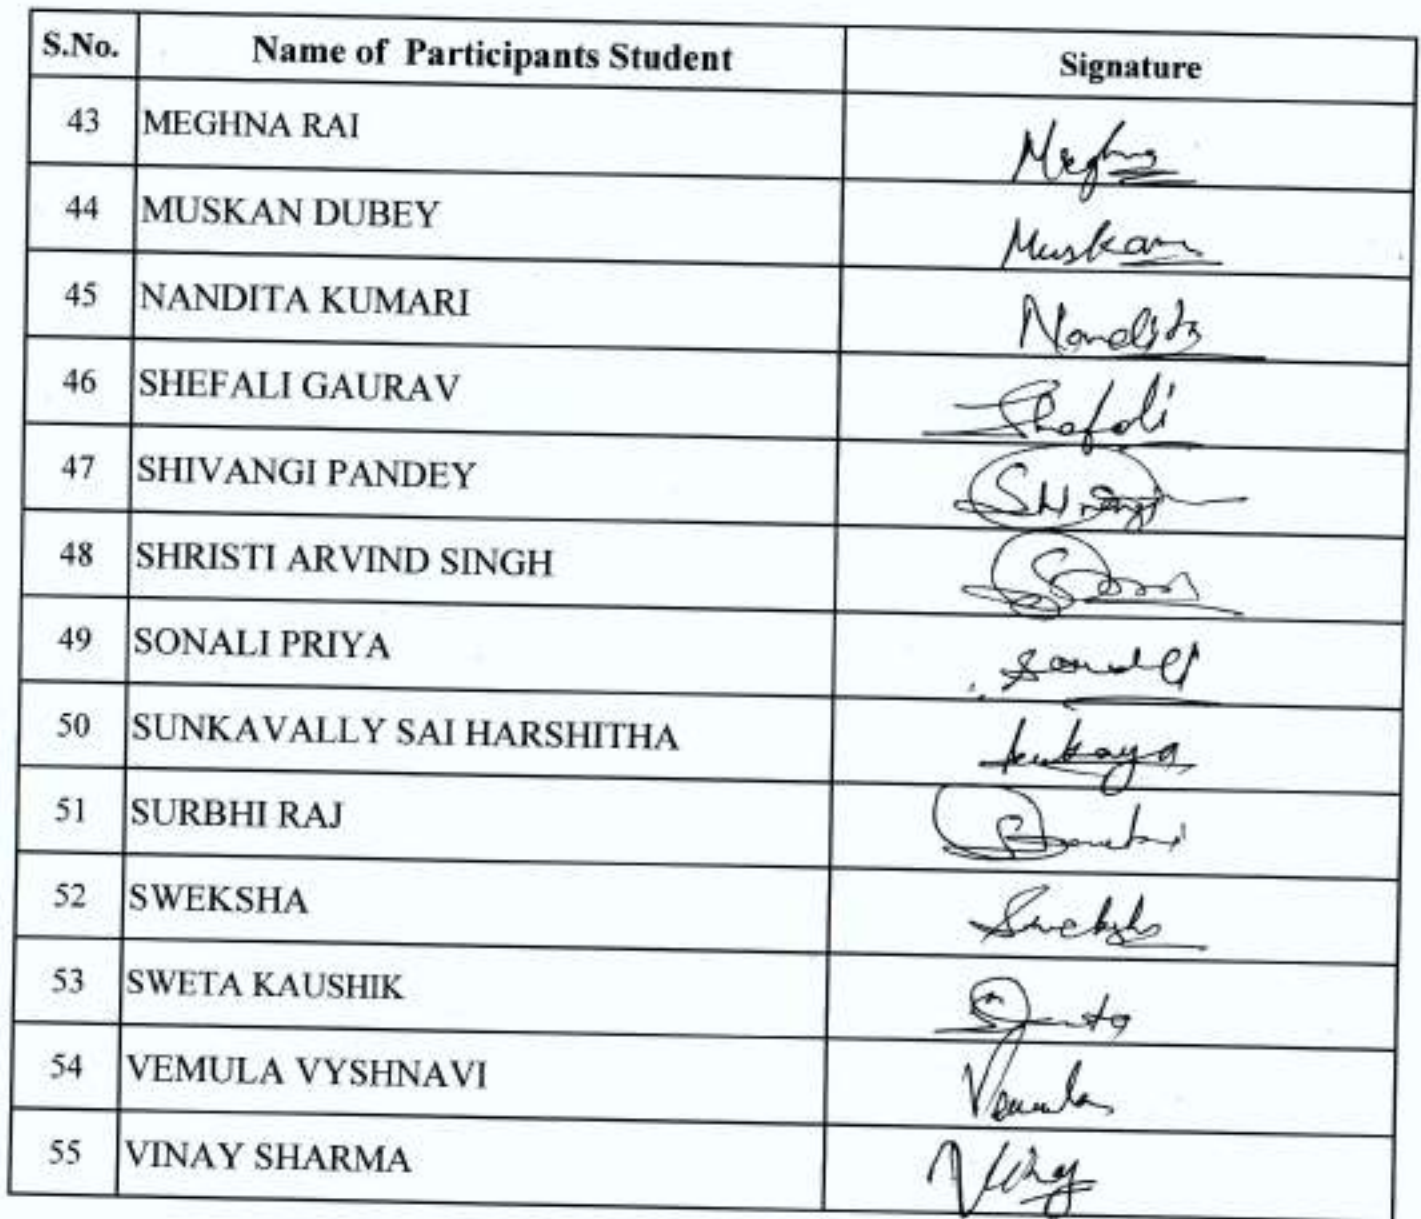 S.No. Name of Participants Student Signature
43 MEGHNA RAI Meghna
44 MUSKAN DUBEY Muskan
45 NANDITA KUMARI Nandita
46 SHEFALI GAURAV Shefali
47 SHIVANGI PANDEY
48 SHRISTI ARVIND SINGH
49 SONALI PRIYA
50 SUNKAVALLY SAI HARSHITHA
51 SURBHI RAJ
52 SWEKSHA Sweksha
53 SWETA KAUSHIK
54 VEMULA VYSHNAVI Vemula
55 VINAY SHARMA Vinay